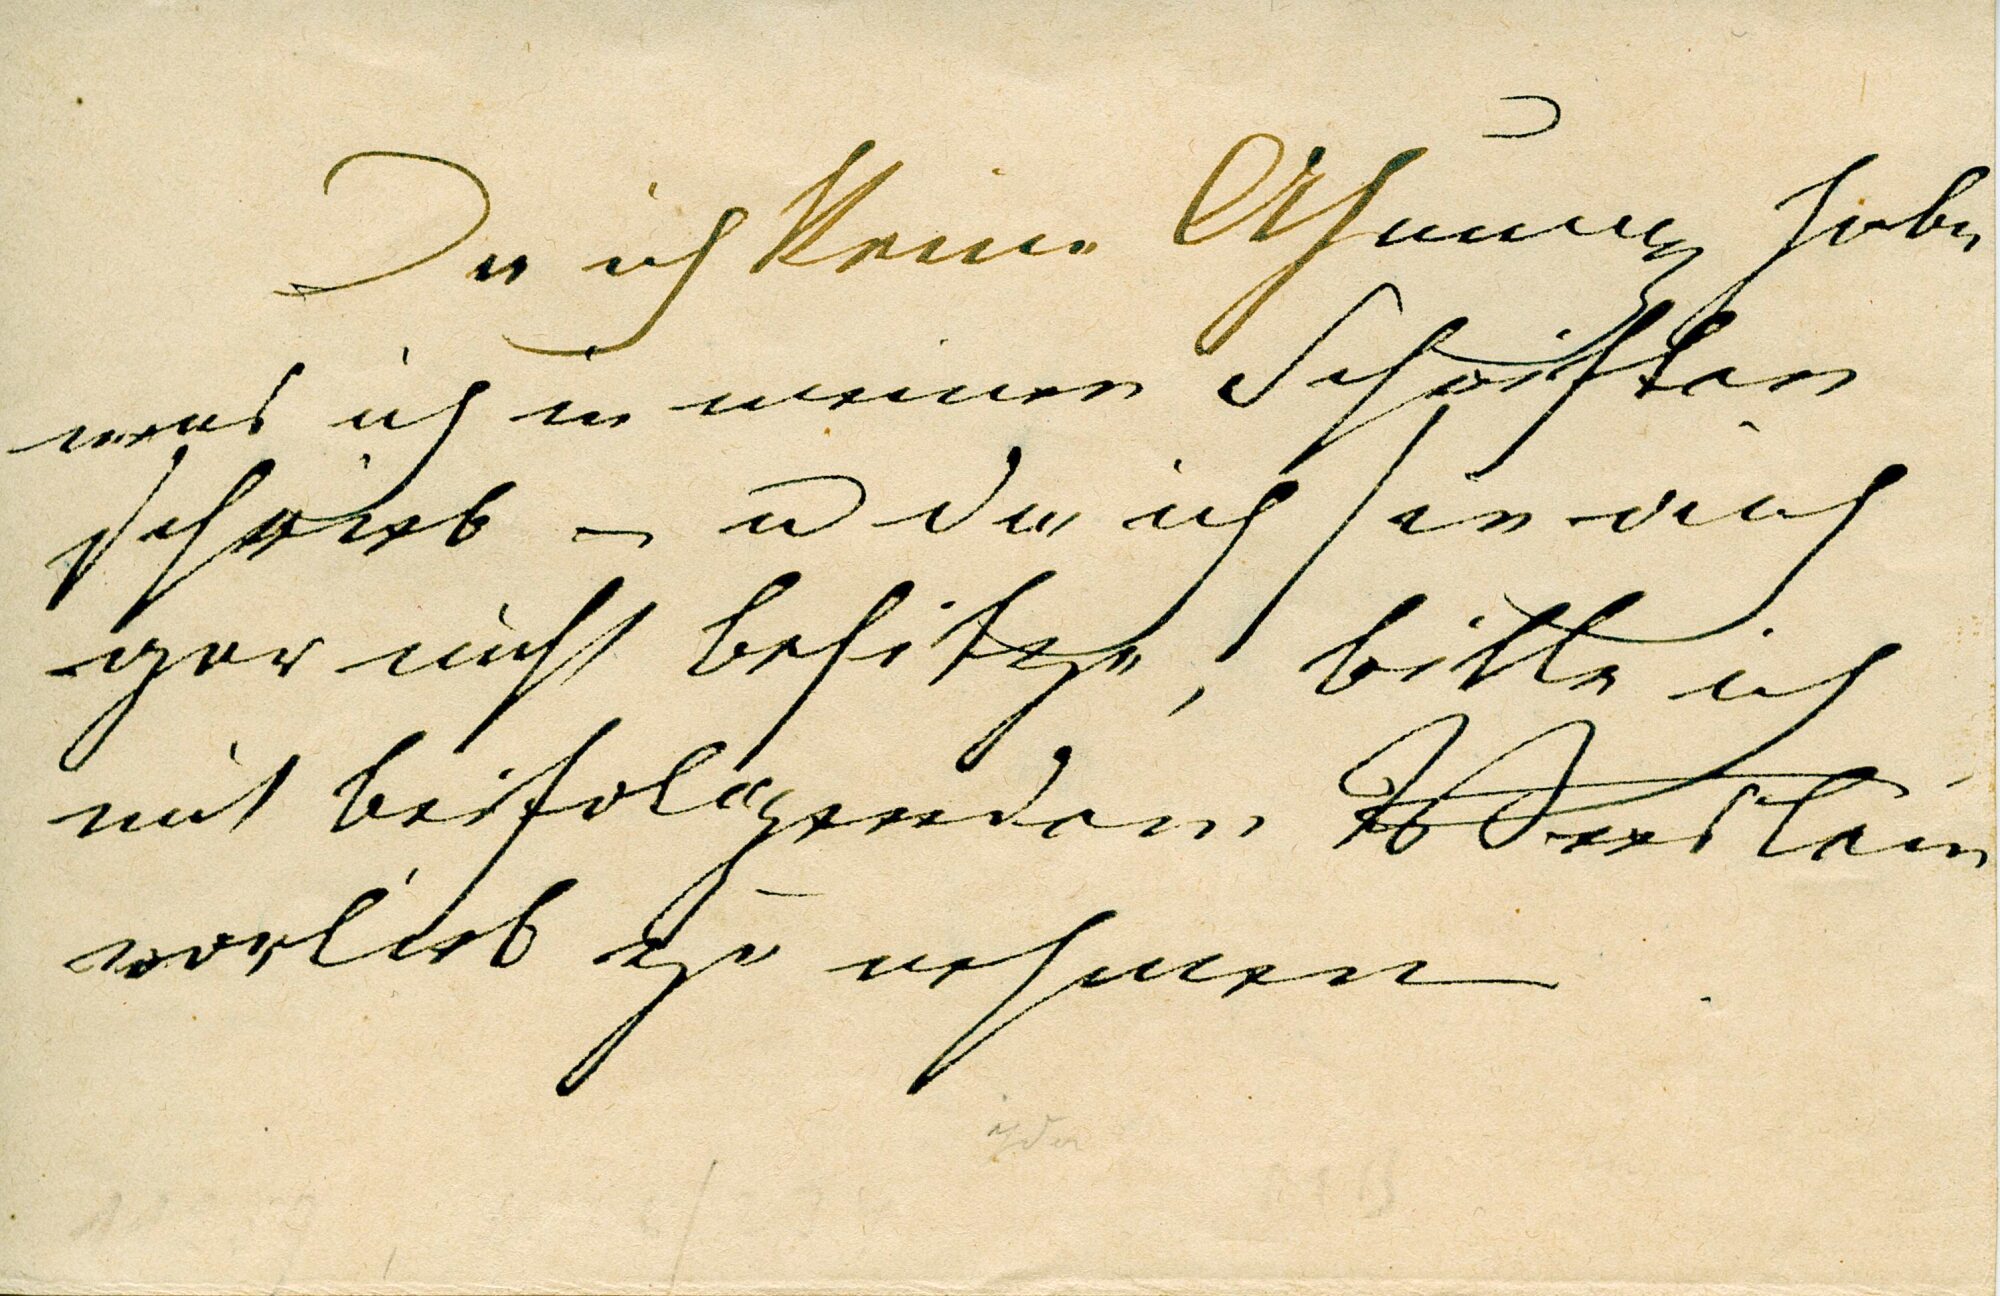 Da ich keine Ahnung habe
was ich in meinen Schriften
schrieb – u da ich sie auch
gar nicht besitze, bitte ich
mit beifolgendem
vorlieb zu nehmen